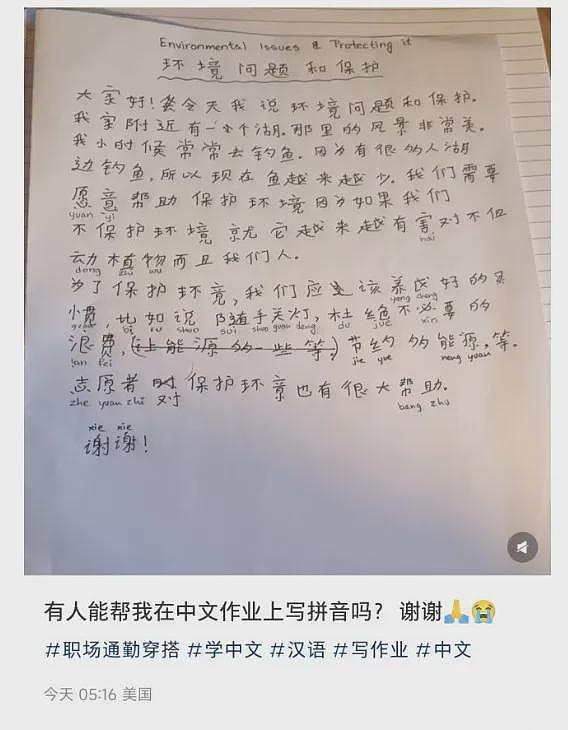 Environmental Issues & Protecting it
环境问题和保护
大家好!今天我说环境问题和保护.
我家附近有一个湖.那里的风景非常美.
我小时候常常去钓鱼.因为有很多人湖
边钓鱼,所以现在鱼越来越少.我们需要
愿意帮助保护环境因为如果我们
yuan yi
不保护环境就它越来越有害对不但
hai
动植物而且我们人.
dong zhi wu
为了保护环境,我们应该养成好的习
yang cheng
惯,比如说随手关灯,杜绝不必要的
guan bi ru shuo sui shou guan deng du jue
浪费,(让能源的一些等.)节约的能源,等.
lan fei jie yue neng yuan
志愿者对保护环境也有很大帮助.
zhe yuan zhi bang zhu
xie xie
谢谢!
有人能帮我在中文作业上写拼音吗? 谢谢🙏😭
#职场通勤穿搭 #学中文 #汉语 #写作业 #中文
今天 05:16 美国